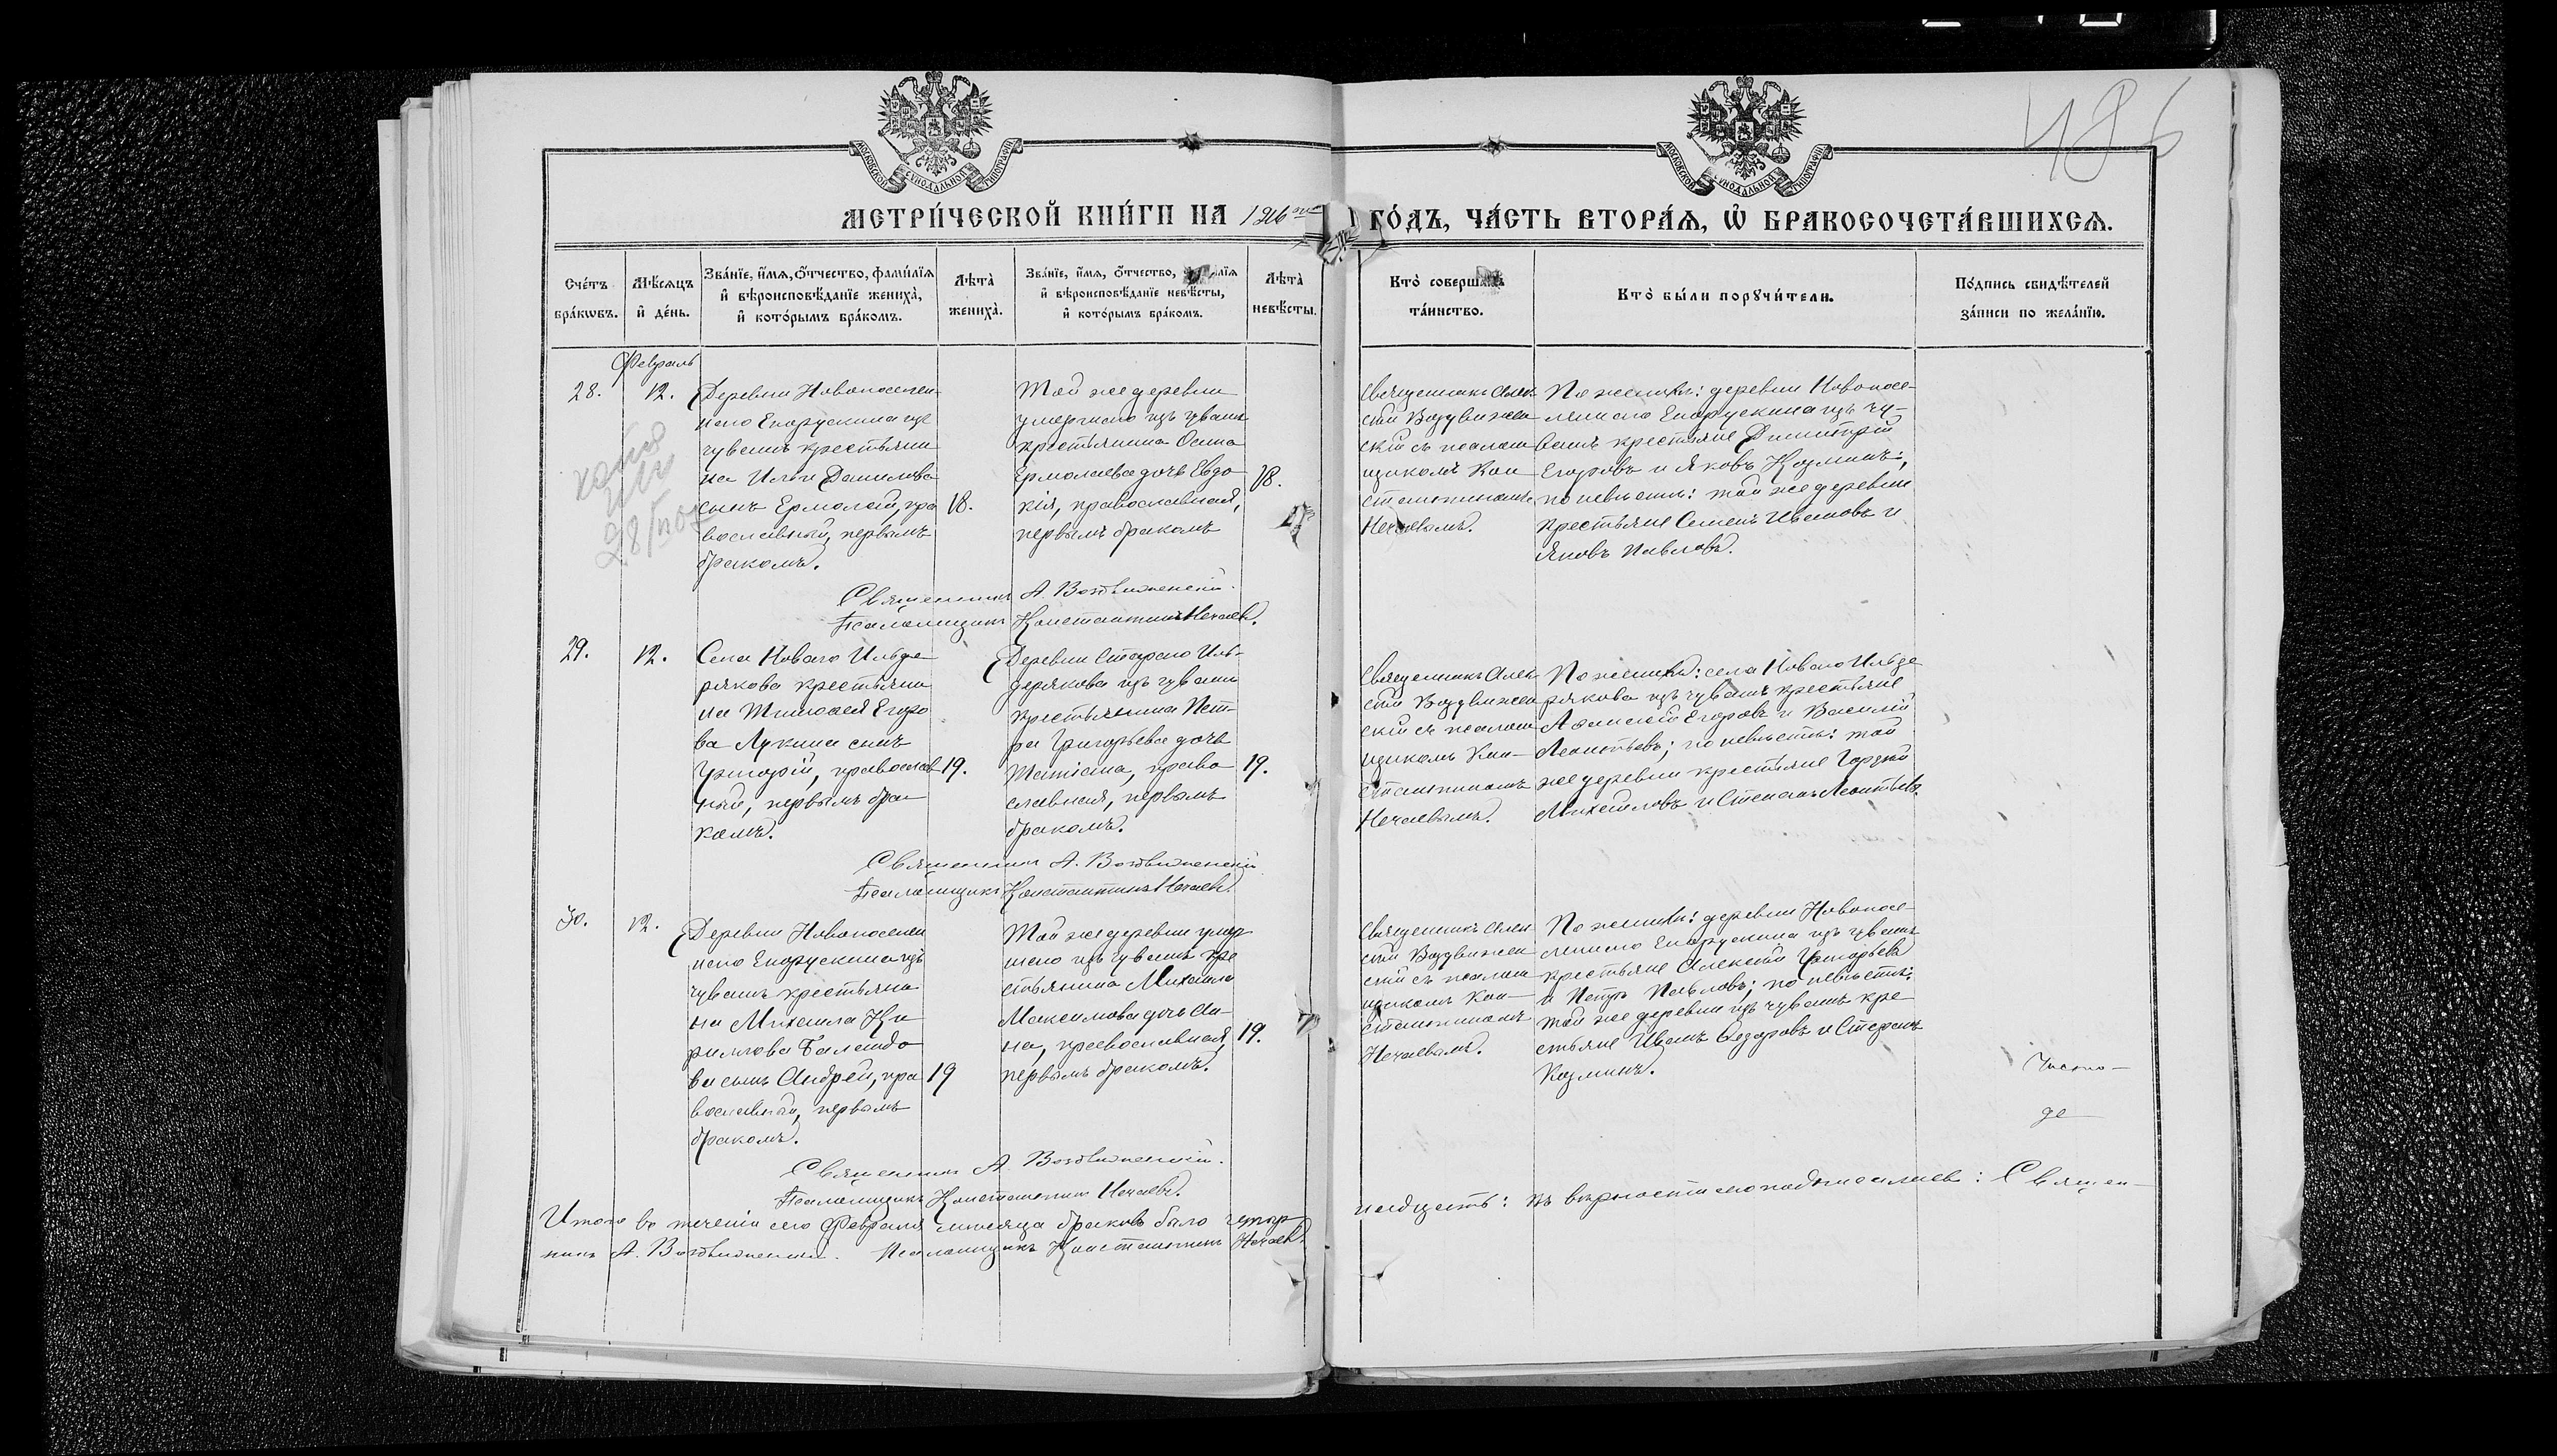 486
МОСКОВСКОЙ СѴНОДАЛЬНОЙ ТИПОГРАФІИ
МОСКОВСКОЙ СѴНОДАЛЬНОЙ ТИПОГРАФІИ
МЕТРИ́ЧЕСКОЙ КНИ́ГИ НА 1916 ГО́ДЪ, ЧА́СТЬ ВТОРА́Я, Ѡ БРАКОСОЧЕТА́ВШИХСЯ.
Сче́тъ бра́кѡвъ.
Мѣ́сяцъ и҆ де́нь.
Зва́нїе, и҆́мя, ѻ҆́тчество, фами́лїя и҆ вѣроисповѣ́данїе жениха̀, и҆ кото́рымъ бра́комъ.
Лѣта̀ жениха̀.
Зва́нїе, и҆́мя, ѻ҆́тчество, и҆ вѣроисповѣ́данїе невѣ́сты, и҆ кото́рымъ бра́комъ.
Лѣта̀ невѣ́сты.
Кто̀ та́инство.
Кто̀ бы́ли порꙋчи́тели.
По́дпись свидѣ́телей за́писи по жела́нїю.
Февраль
28.
12.
Деревни Новопоселен-
наго Енорускина изъ
чувашъ крестьяни
на Ильи Данилова
сынъ Ермолай, пра
вославный, первымъ
бракомъ.
18.
Той же деревни
умершаго изъ чувашъ
крестьянина Осипа
Ермолаева дочь Евдо
кія, православная,
первымъ бракомъ
18.
Священникъ Алек
сѣй Воздвижен
скій съ псалом
щикомъ Кон
стантиномъ
Нечаевымъ.
По женихѣ: деревни Новопосе-
леннаго Енорускина изъ чу-
вашъ крестьяне Димитрій
Егоровъ и Яковъ Козминъ;
по невѣстѣ: той же деревни
крестьяне Семенъ Ивановъ и
Яковъ Павловъ.
Священникъ А. Воздвиженскій.
Псаломщикъ Константинъ Нечаевъ.
29.
12.
Села Новаго Ильде
рякова крестьяни
на Тимофея Егоро
ва Лукина сынъ
Григорій, православ
ный, первымъ бра
комъ.
19.
Деревни Стараго Иль-
дерякова изъ чувашъ
крестьянина Пет-
ра Григорьева дочь
Татіана, право
славная, первымъ
бракомъ.
19.
Священникъ Алек
сѣй Воздвижен
скій съ псалом
щикомъ Кон-
стантиномъ
Нечаевымъ.
По женихѣ: села Новаго Ильде
рякова изъ чувашъ крестьяне
Афанасій Егоровъ и Василій
Леонтьевъ; по невѣстѣ: той
же деревни крестьяне Гордѣй
Михайловъ и Степанъ Леонтьевъ.
Священникъ А. Воздвиженскій
Псаломщикъ Константинъ Нечаевъ.
30.
12.
Деревни Новопоселен
наго Енорускина изъ
чувашъ крестьяни
на Михаила Ки
риллова Баландо
ва сынъ Андрей, пра
вославный, первымъ
бракомъ.
19
Той же деревни умер
шаго изъ чувашъ кре
стьянина Михаила
Максимова дочь Ан-
на, православная,
первымъ бракомъ.
19.
Священникъ Алек
сѣй Воздвижен
скій съ псалом
щикомъ Кон-
стантиномъ
Нечаевымъ.
По женихѣ: деревни Новопосе-
леннаго Енорускина изъ чувашъ
крестьяне Алексѣй Григорьевъ
и Петръ Павловъ; по невѣстѣ:
той же деревни изъ чувашъ кре
стьяне Иванъ Ѳедоровъ и Стефанъ
Козминъ.
Священникъ А. Воздвиженскій.
Псаломщикъ Константинъ Нечаевъ.
Итого въ теченіи сего Февраля мѣсяца браковъ было четыр
надцать: къ вѣрности сего подписались: Священ-
никъ А. Воздвиженскій. Псаломщикъ Константинъ Нечаевъ.